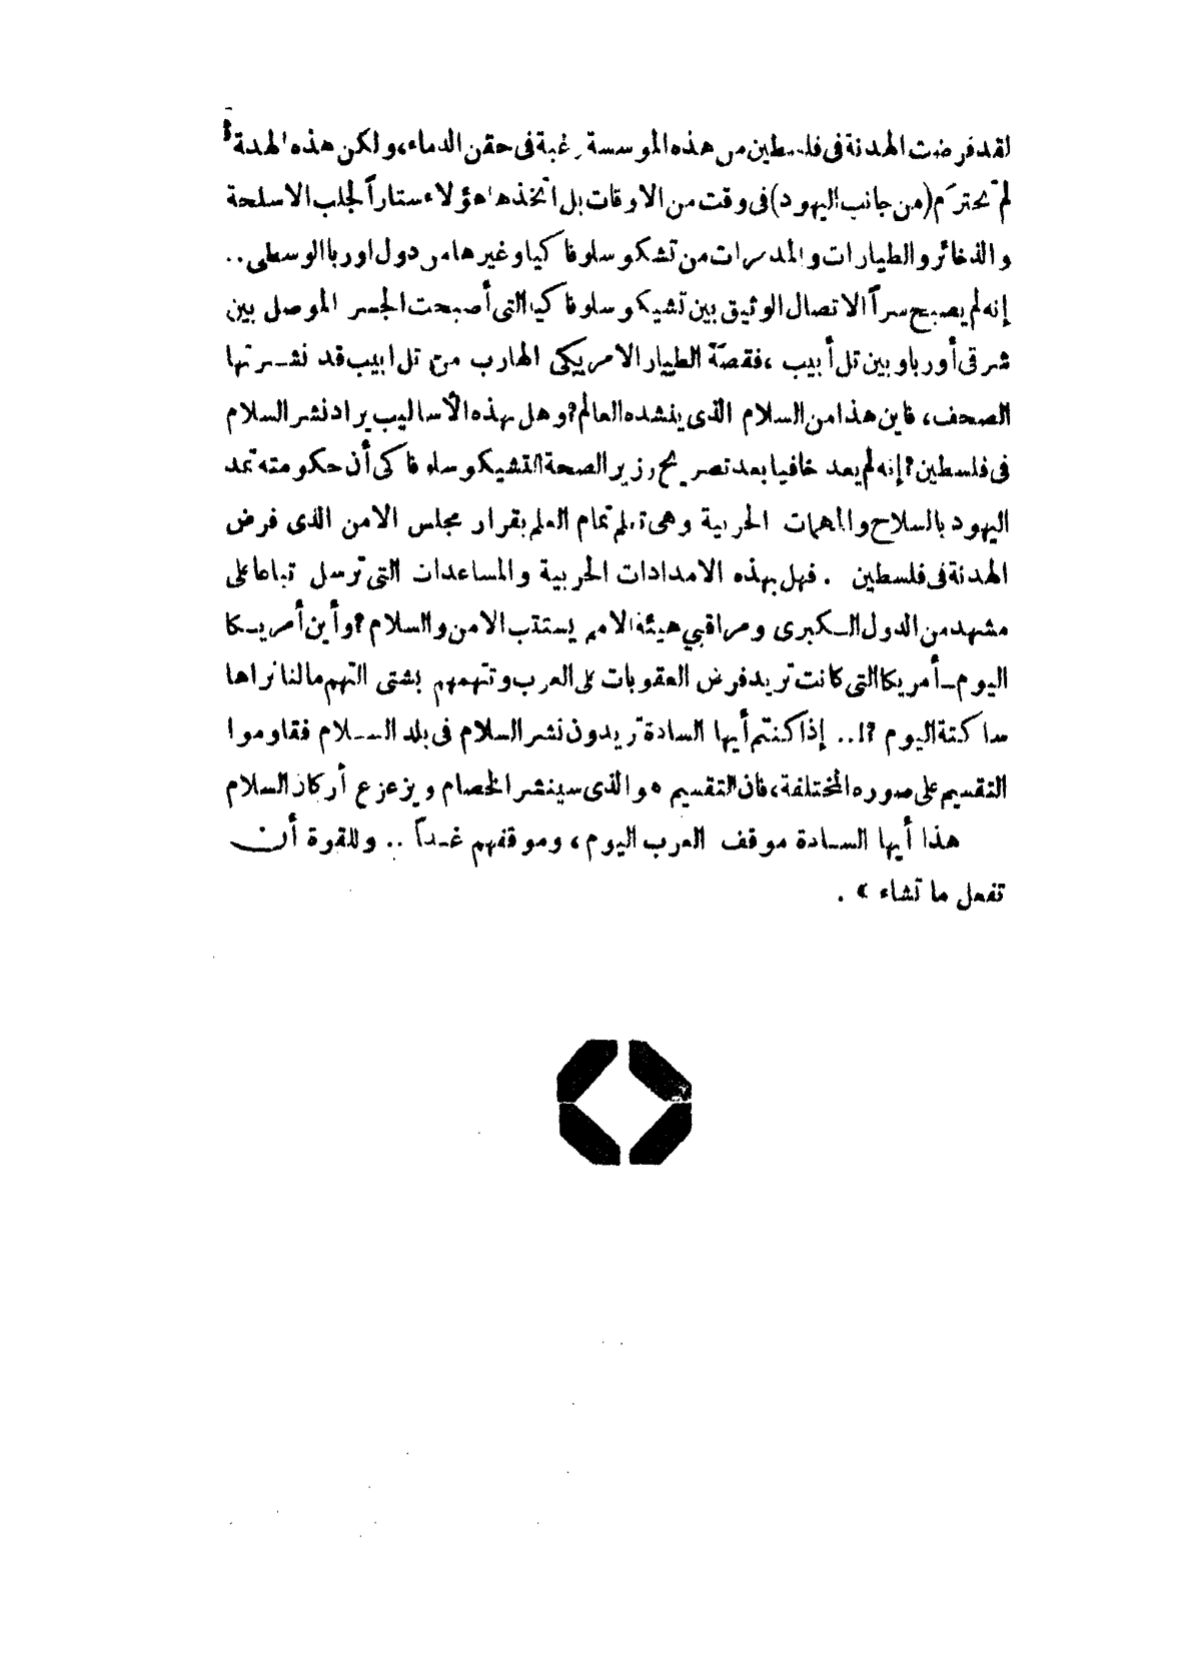 لقد فرضت الهدنة فى فلسطين من هذه المؤسسة رغبة فى حقن الدماء، ولكن هذه الهدنة
لم تحترَم (من جانب اليهود) فى وقت من الاوقات بل اتخذها هؤلاء ستاراً لجلب الاسلحة
والذخائر والطيارات والمدمرات من تشكوسلوفاكيا وغيرها من دول اوربا الوسطى..
إنه لم يصبح سراً الاتصال الوثيق بين تشيكوسلوفاكيا التى أصبحت الجسر الموصل بين
شرقى أوربا وبين تل أبيب، فقصّة الطيار الامريكى الهارب من تل ابيب قد نشرتها
الصحف، فاين هذا من السلام الذى ينشده العالم؟ وهل بهذه الأساليب يراد نشر السلام
فى فلسطين؟ إنه لم يعد خافيا بعد تصريح وزير الصحة التشيكوسلوفاكى أن حكومته تمد
اليهود بالسلاح والمهمات الحربية وهى تعلم تمام العلم بقرار مجلس الامن الذى فرض
الهدنة فى فلسطين . فهل بهذه الامدادات الحربية والمساعدات التى ترسل تباعا على
مشهد من الدول الكبرى ومراقبي هيئة الامم يستتب الامن والسلام؟ وأين أمريكا
اليوم ـ أمريكا التى كانت تريد فرض العقوبات على العرب وتتهمهم بشتى التهم مالنا نراها
ساكتة اليوم ؟!.. إذا كنتم أيها السادة تريدون نشر السلام فى بلد السلام فقاوموا
التقسيم على صوره المختلفة، فان التقسيم هو الذى سينشر الخصام ويزعزع أركان السلام
هذا أيها السادة موقف العرب اليوم، وموقفهم غداً .. وللقوة أن
تفعل ما تشاء » .